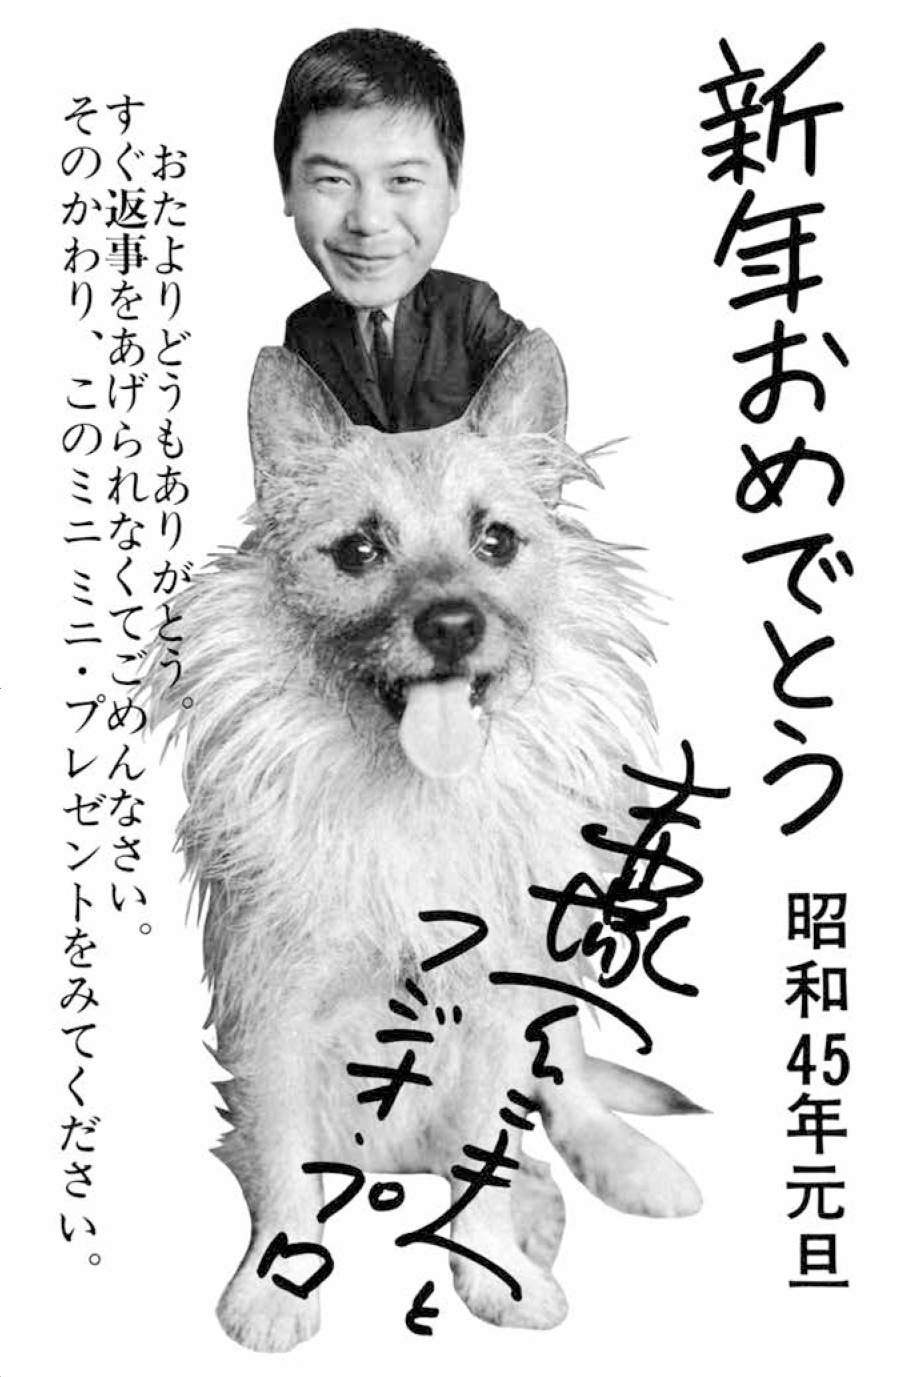 新年おめでとう
昭和45年元旦
赤塚不二夫と
フジオ・プロ
おたよりどうもありがとう。
すぐ返事をあげられなくてごめんなさい。
そのかわり、このミニミニ・プレゼントをみてください。